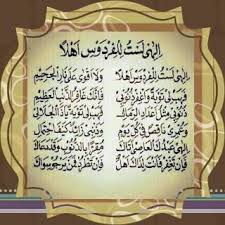 إِلٰهِى لَسْتُ لِلْفِرْدَوْسِ أَهْلًا
إِلٰهِى لَسْتُ لِلْفِرْدَوْسِ أَهْلًا وَلَا أَقْوَى عَلَى نَارِ الْجَحِيْمِ
فَهَبْ لِى تَوْبَةً وَاغْفِرْ ذُنُوْبِى فَإِنَّكَ غَافِرُ الذَّنْبِ الْعَظِيْمِ
ذُنُوْبِى مِثْلُ أَعْدَادِ الرِّمَالِ فَهَبْ لِى تَوْبَةً يَا ذَا الْجَلَالِ
وَعُمْرِى نَاقِصٌ فِى كُلِّ يَوْمٍ وَذَنْبِى زَائِدٌ كَيْفَ احْتِمَالِى
إِلٰهِى عَبْدُكَ الْعَاصِى أَتَاكَ مُقِرًّا بِالذُّنُوْبِ وَقَدْ دَعَاكَ
فَإِنْ تَغْفِرْ فَأَنْتَ لِذَاكَ أَهْلٌ فَإِنْ تَطْرُدْ فَمَنْ نَرْجُو سِوَاكَ